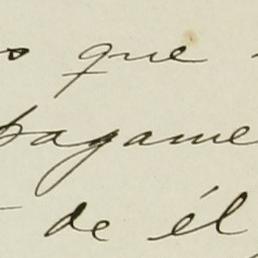 que
pagame
de él